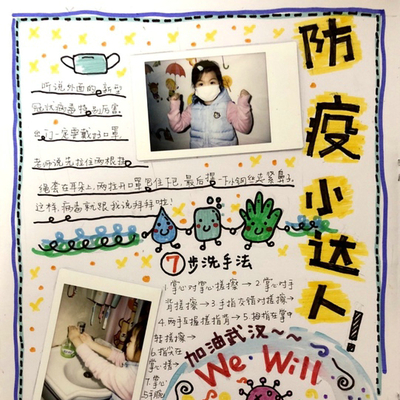 防疫小达人!
听说外面的新型
冠状病毒特别厉害
出门一定要戴好口罩
老师说先拉住两根拉
绳套在耳朵上,两拉开口罩包住下巴,最后捏一下小钢丝是紧鼻子
这样,病毒就跟我说拜拜啦!
7步洗手法
1.掌心对掌心搓擦→2.掌心对手
背搓擦→3.手指交错对搓擦→
4.两手互握搓指背→5.拇指在掌中
转搓擦→
6.指尖在
掌心搓→
7.掌心
加油武汉~~
We Will